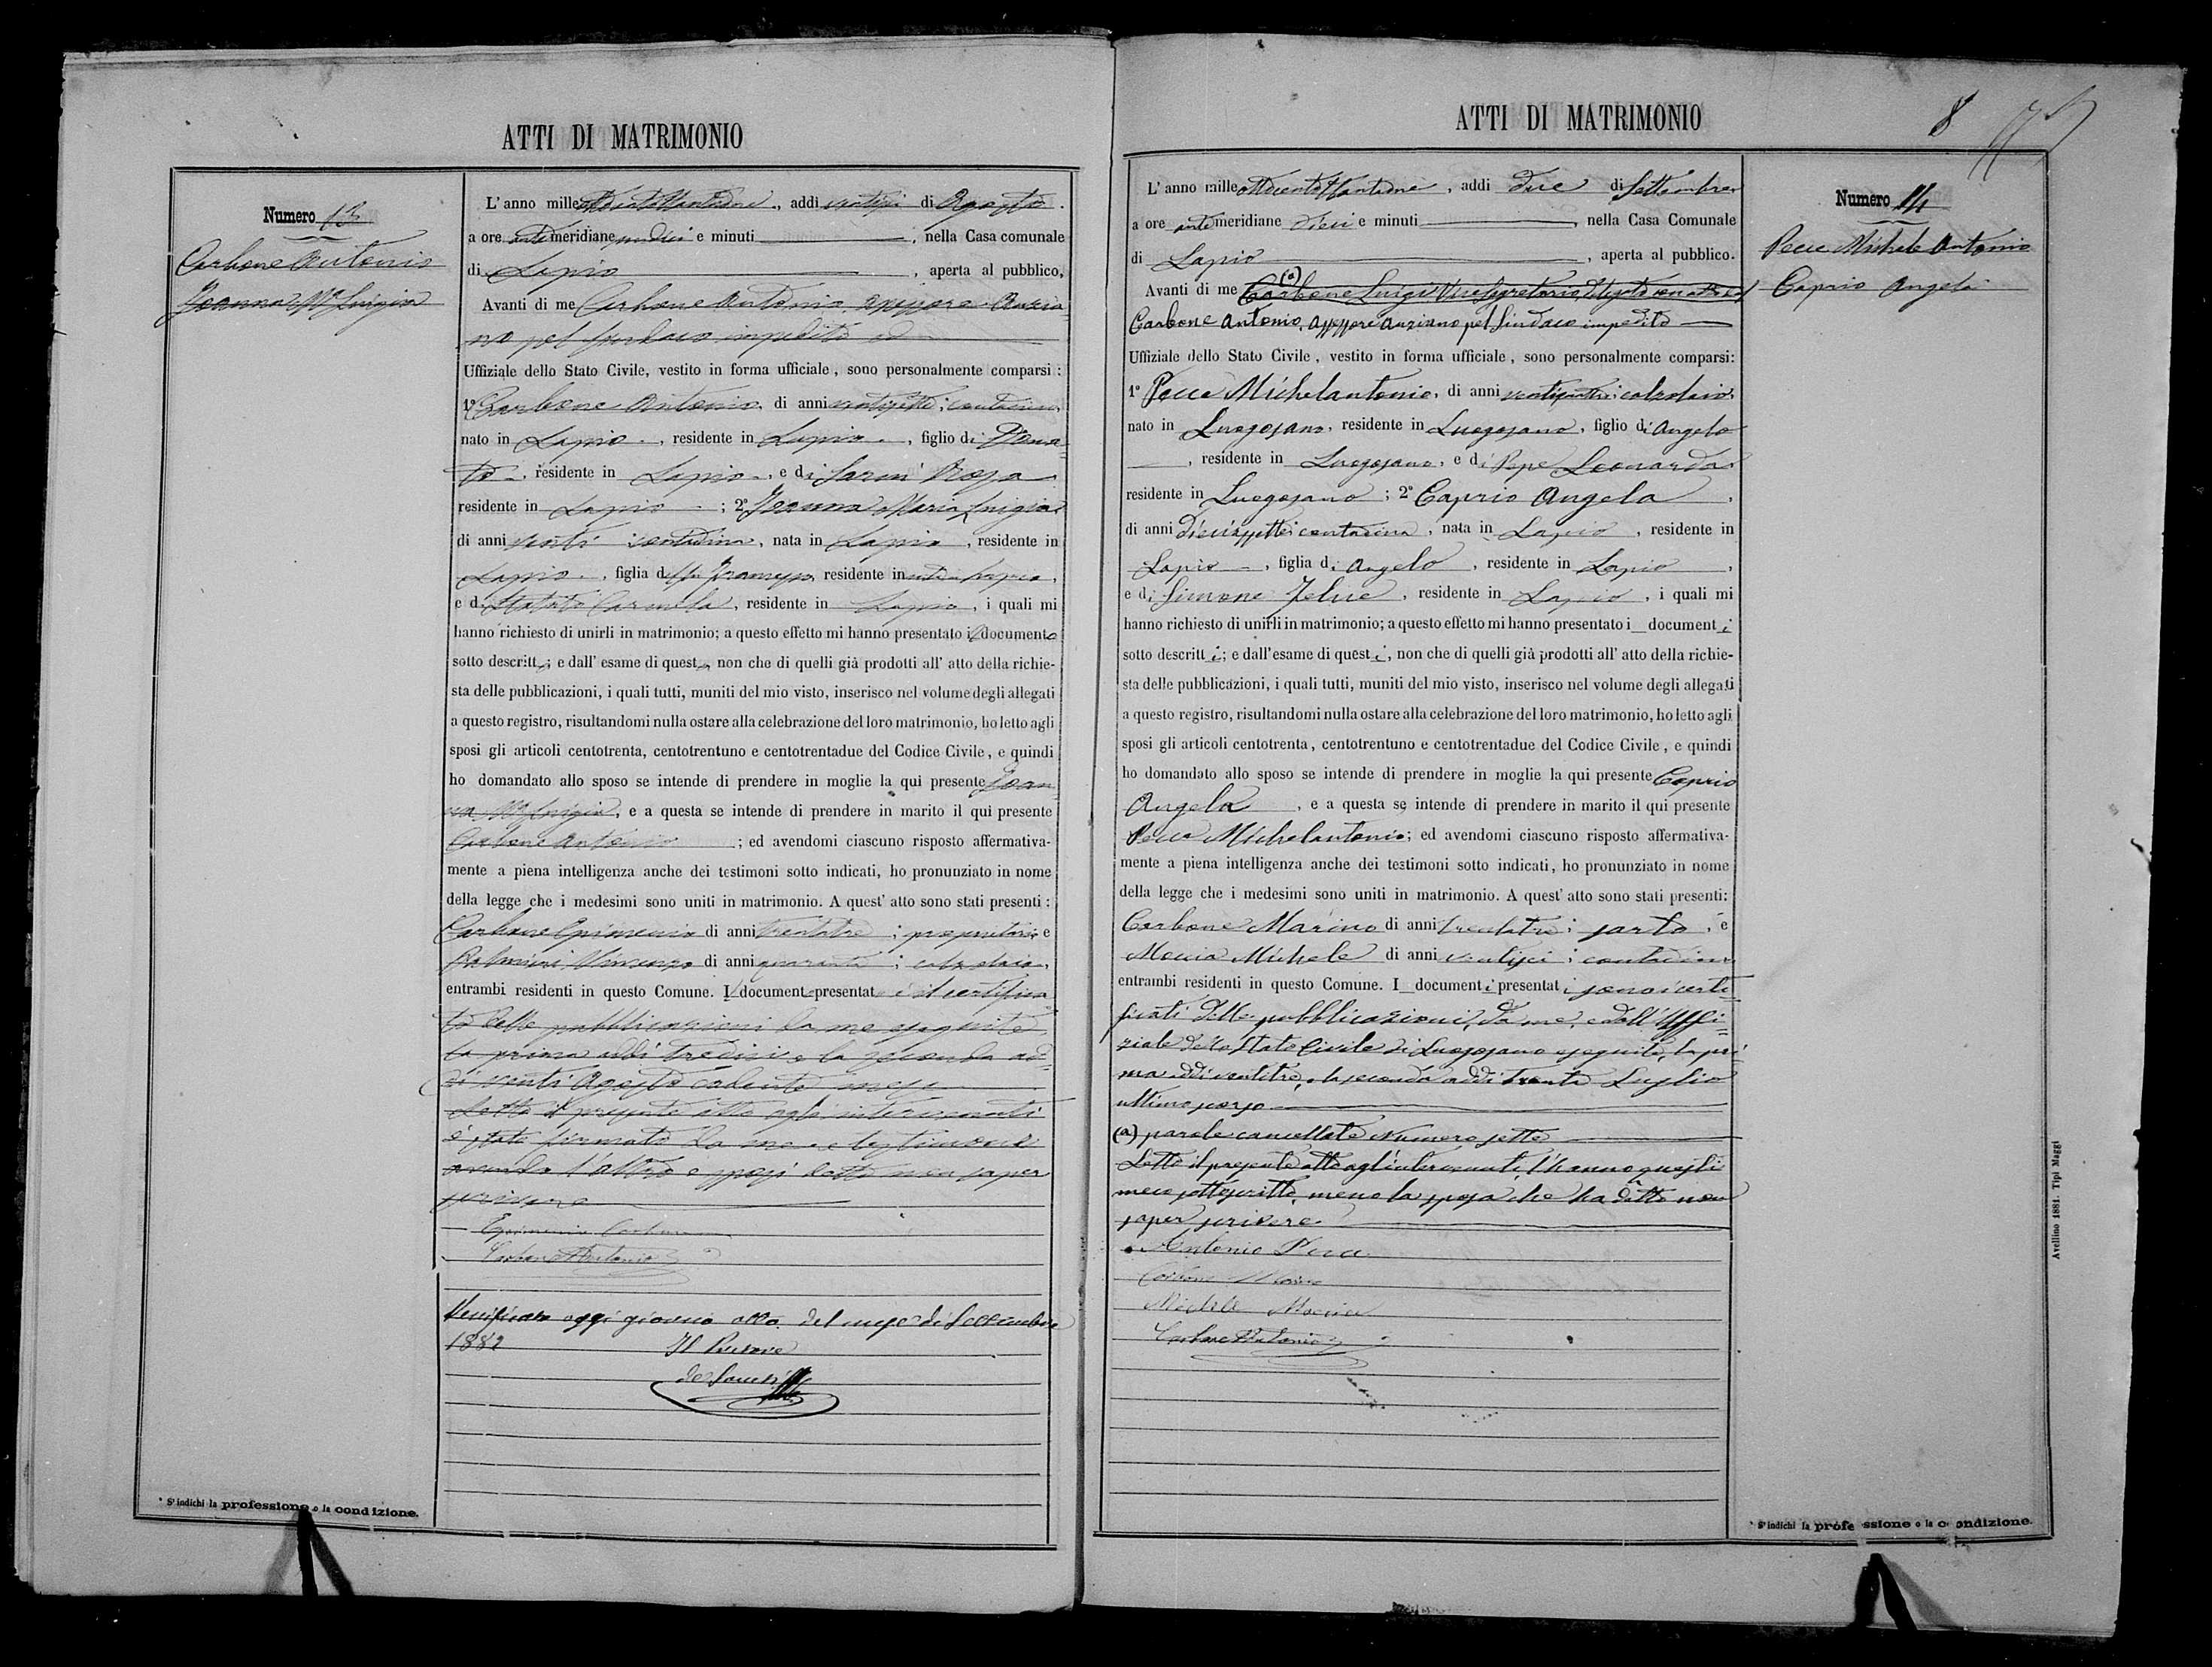 ATTI DI MATRIMONIO
Numero 13
Carbone Antonio
Joanna Mª Luigia
L'anno milleottocentottantadue, addì ventisei di Agosto
a ore antimeridiane undici e minuti, nella Casa comunale
di Lapio, aperta al pubblico,
Avanti di me Carbone Antonio, assessore Anzia-
no pel Sindaco impedito ed
Uffiziale dello Stato Civile, vestito in forma ufficiale, sono personalmente comparsi:
1º Carbone Antonio, di anni ventisette; contadino,
nato in Lapio, residente in Lapio, figlio di Dona-
to, residente in Lapio, e di Sarni Rosa
residente in Lapio; 2º Joanna Maria Luigia
di anni venti contadina, nata in Lapio, residente in
Lapio, figlia del fu residente in vita Lapio,
e di Carmela, residente in Lapio, i quali mi
hanno richiesto di unirli in matrimonio; a questo effetto mi hanno presentato il documento
sotto descritto; e dall' esame di questo, non che di quelli già prodotti all' atto della richie-
sta delle pubblicazioni, i quali tutti, muniti del mio visto, inserisco nel volume degli allegati
a questo registro, risultandomi nulla ostare alla celebrazione del loro matrimonio, ho letto agli
sposi gli articoli centotrenta, centotrentuno e centotrentadue del Codice Civile, e quindi
ho domandato allo sposo se intende di prendere in moglie la qui presente Joan-
na Mª Luigia, e a questa se intende di prendere in marito il qui presente
Carbone Antonio; ed avendomi ciascuno risposto affermativa-
mente a piena intelligenza anche dei testimoni sotto indicati, ho pronunziato in nome
della legge che i medesimi sono uniti in matrimonio. A quest' atto sono stati presenti:
Carbone Epimenio di anni trentatre; proprietario e
Palmieri Vincenzo di anni quaranta; calzolaio,
entrambi residenti in questo Comune. Il documento presentato è il certifica-
to delle pubblicazioni da me eseguite
la prima addì tredici e la seconda ad-
dì venti Agosto cadente mese
Letto il presente atto agl'intervenuti
è stato firmato da me e testimone
avendo l'altro e sposi detto non saper
scrivere
Epimenio Carbone
Carbone Antonio
Verificato oggi giorno otto del mese di Settembre
1882 Il Pretore
* S'indichi la professione o la condizione.
ATTI DI MATRIMONIO
8
L'anno milleottocentottantadue, addì due di Settembre
a ore antimeridiane dieci e minuti, nella Casa Comunale
di Lapio, aperta al pubblico.
(a)
Avanti di me Carbone Luigi Vice Segretario Delegato con atto
Carbone Antonio, Assessore Anziano pel Sindaco impedito
Uffiziale dello Stato Civile, vestito in forma ufficiale, sono personalmente comparsi:
1º Pecce Michelantonio, di anni calzolaio,
nato in Luogosano, residente in Luogosano, figlio di Angelo
, residente in Luogosano, e di Pepe Leonarda
residente in Luogosano; 2º Caprio Angela,
di anni diciassette; contadina, nata in Lapio, residente in
Lapio, figlia di Angelo, residente in Lapio,
e di Simone Felice, residente in Lapio, i quali mi
hanno richiesto di unirli in matrimonio; a questo effetto mi hanno presentato i documenti
sotto descritti; e dall'esame di questi, non che di quelli già prodotti all' atto della richie-
sta delle pubblicazioni, i quali tutti, muniti del mio visto, inserisco nel volume degli allegati
a questo registro, risultandomi nulla ostare alla celebrazione del loro matrimonio, ho letto agli
sposi gli articoli centotrenta, centotrentuno e centotrentadue del Codice Civile, e quindi
ho domandato allo sposo se intende di prendere in moglie la qui presente Caprio
Angela, e a questa se intende di prendere in marito il qui presente
Pecce Michelantonio; ed avendomi ciascuno risposto affermativa-
mente a piena intelligenza anche dei testimoni sotto indicati, ho pronunziato in nome
della legge che i medesimi sono uniti in matrimonio. A quest' atto sono stati presenti:
Carbone Marino di anni trentatre; sarto, e
Moccia Michele di anni ventisei; contadino,
entrambi residenti in questo Comune. I documenti presentati sono i certi-
ficati delle pubblicazioni, da me, e dall'Uffi-
ziale dello Stato Civile di Luogosano eseguite, la pri-
ma addì ventitre, e la seconda addì trenta Luglio
ultimo scorso
(a) parole cancellate Numero sette
Letto il presente atto agl'intervenuti, l'hanno questi
meco sottoscritto, meno la sposa che ha detto non
saper scrivere.
Antonio Pecce
Carbone Marino
Michele Moccia
Carbone Antonio
Numero 14
Pecce Michele Antonio
Caprio Angela
* S'indichi la professione o la condizione.
Avellino 1881. Tipi Maggi